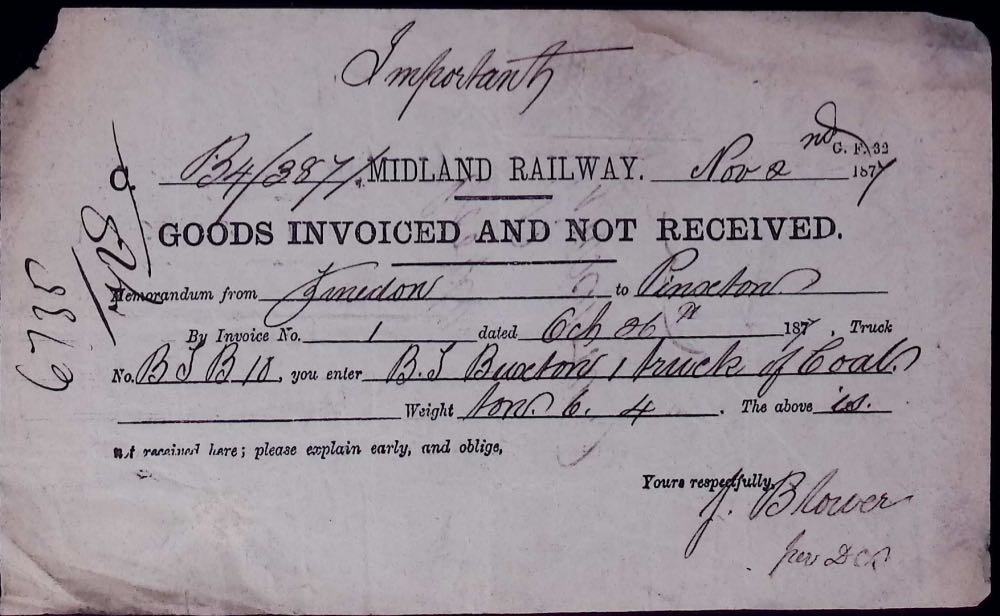 Important
B4/387/. MIDLAND RAILWAY. Nov 2nd 1877
G. F. 32
GOODS INVOICED AND NOT RECEIVED.
Memorandum from Finedon to Pinxton
By Invoice No. 1 dated Oct 26th 1877, Truck
No. B J B 18, you enter B. J Buxton 1 truck of Coal.
Weight tons 6. 4. The above is.
not received here; please explain early, and oblige,
Yours respectfully,
J. Blower
per
6735